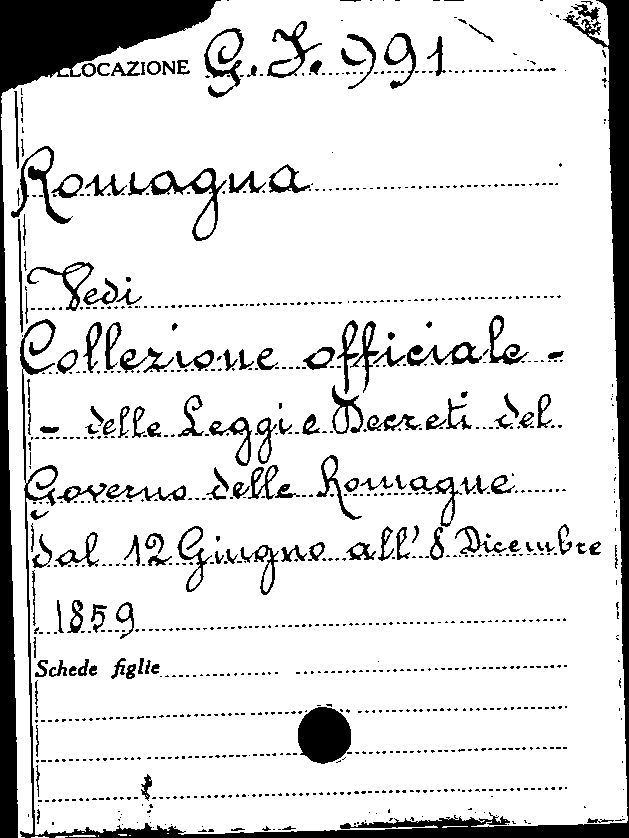 COLLOCAZIONE G.I. 991
Romagna
Vedi
Collezione officiale -
- delle Leggi e Decreti del
Governo delle Romagne
dal 12 Giugno all' 8 Dicembre
1859
Schede figlie